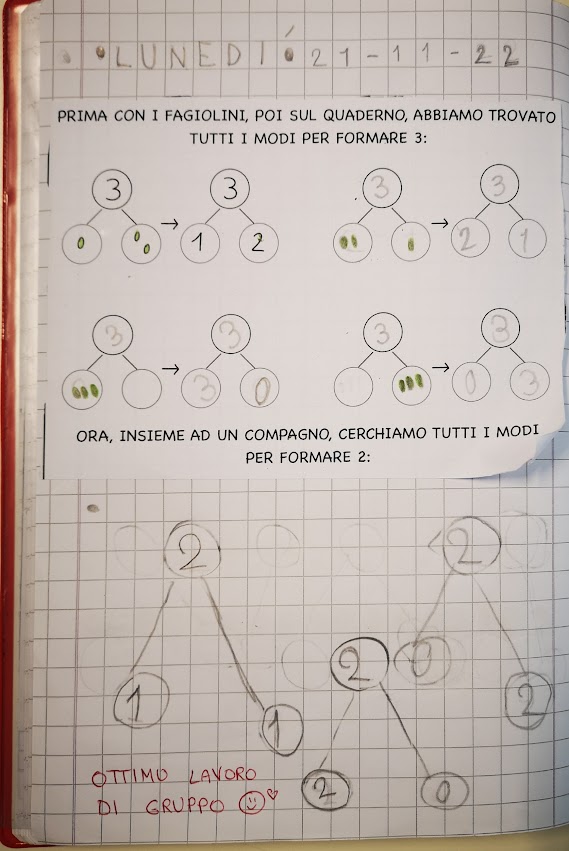 LUNEDÌ 21-11-22
PRIMA CON I FAGIOLINI, POI SUL QUADERNO, ABBIAMO TROVATO
TUTTI I MODI PER FORMARE 3:
3 3 3 3
1 2 2 1
3 3 3 3
3 0 0 3
ORA, INSIEME AD UN COMPAGNO, CERCHIAMO TUTTI I MODI
PER FORMARE 2:
2 2
2 0
1 1 2
2 0
OTTIMO LAVORO
DI GRUPPO